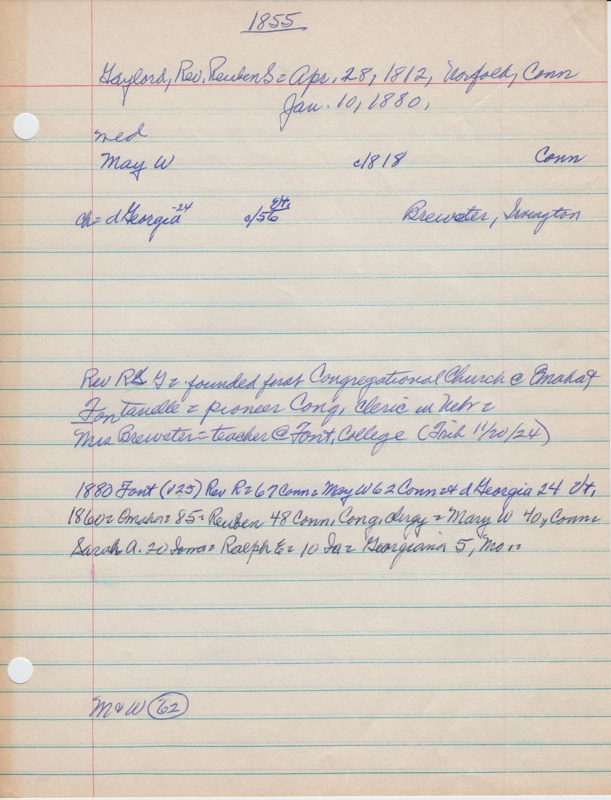 1855
Gaylord, Rev. Reuben S = Apr. 28, 1812, Norfolk, Conn
Jan. 10, 1880,
med
May W c/818 Conn
ch = d Georgia -24 c/56 Vt, Brewster, Irvington
Rev R G = founded first Congregational Church @ Omaha &
Fontanelle = pioneer Cong, Cleric in Nebr =
Mrs Brewster = teacher @ Font. College (Trib 11/20/24)
1880 Font (v25) Rev R = 67 Conn = May W 62 Conn = & d Georgia 24 Vt,
1860 = Omaha = 85 = Reuben 48 Conn, Cong, clergy = Mary W 40, Conn =
Sarah A. 20 Iowa = Ralph E = 10 Ia = Georgiana 5, Mo =
M & W 62